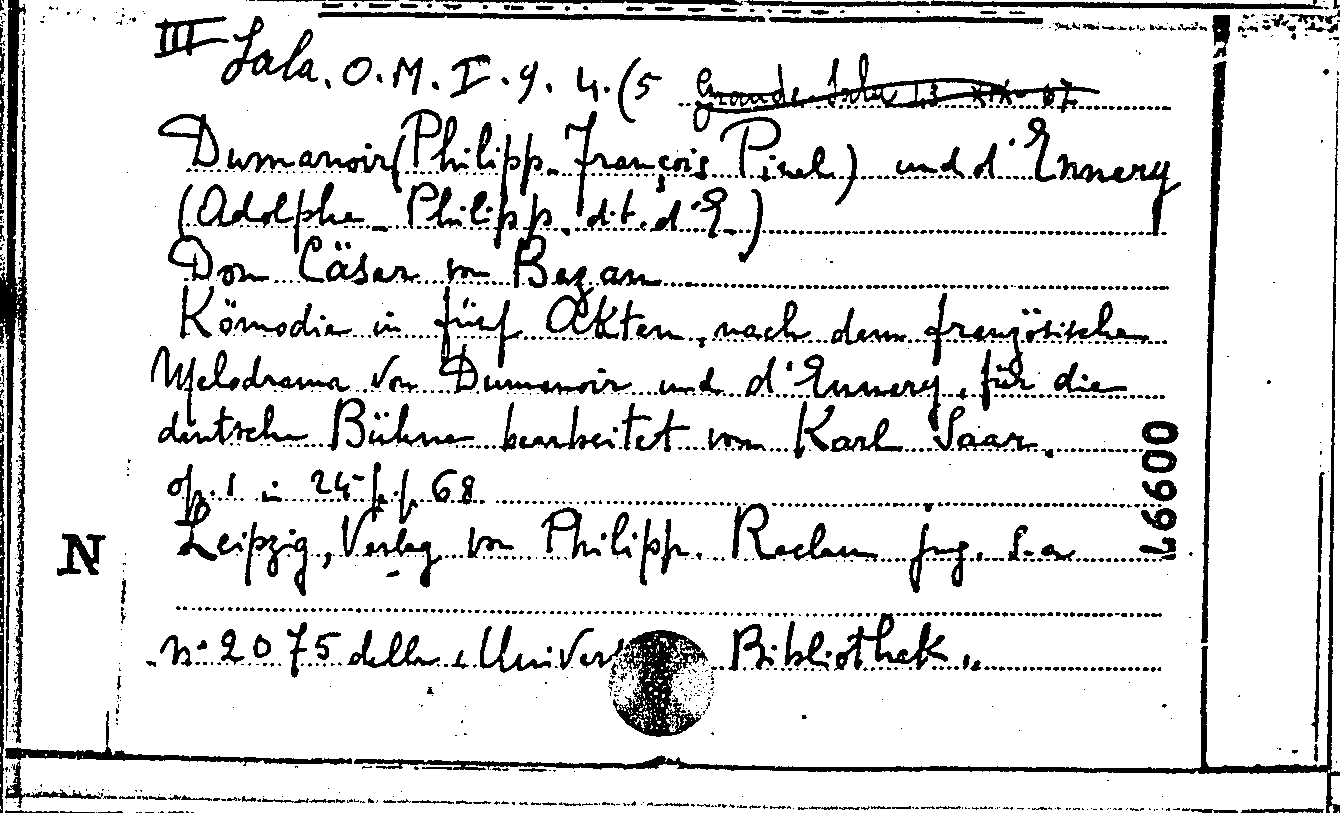 III Sala. O. M. I. 9. 4. (5 Grande Sala 13 XIX 67
Dumanoir (Philipp. François Pinel) und d'Ennery
(Adolphe Philipp. dit. d'E.)
Don Cäsar von Bazan
Kömodie in fünf Akten, nach dem französische
Melodrama von Dumanoir und d'Ennery, für die
deutsche Bühne bearbeitet von Karl Saar.
op. 1 in 24° p.p. 68
Leipzig, Verlag von Philipp. Reclam jug. S.a
N
n. 2075 della "Univers Bibliothek"
00997